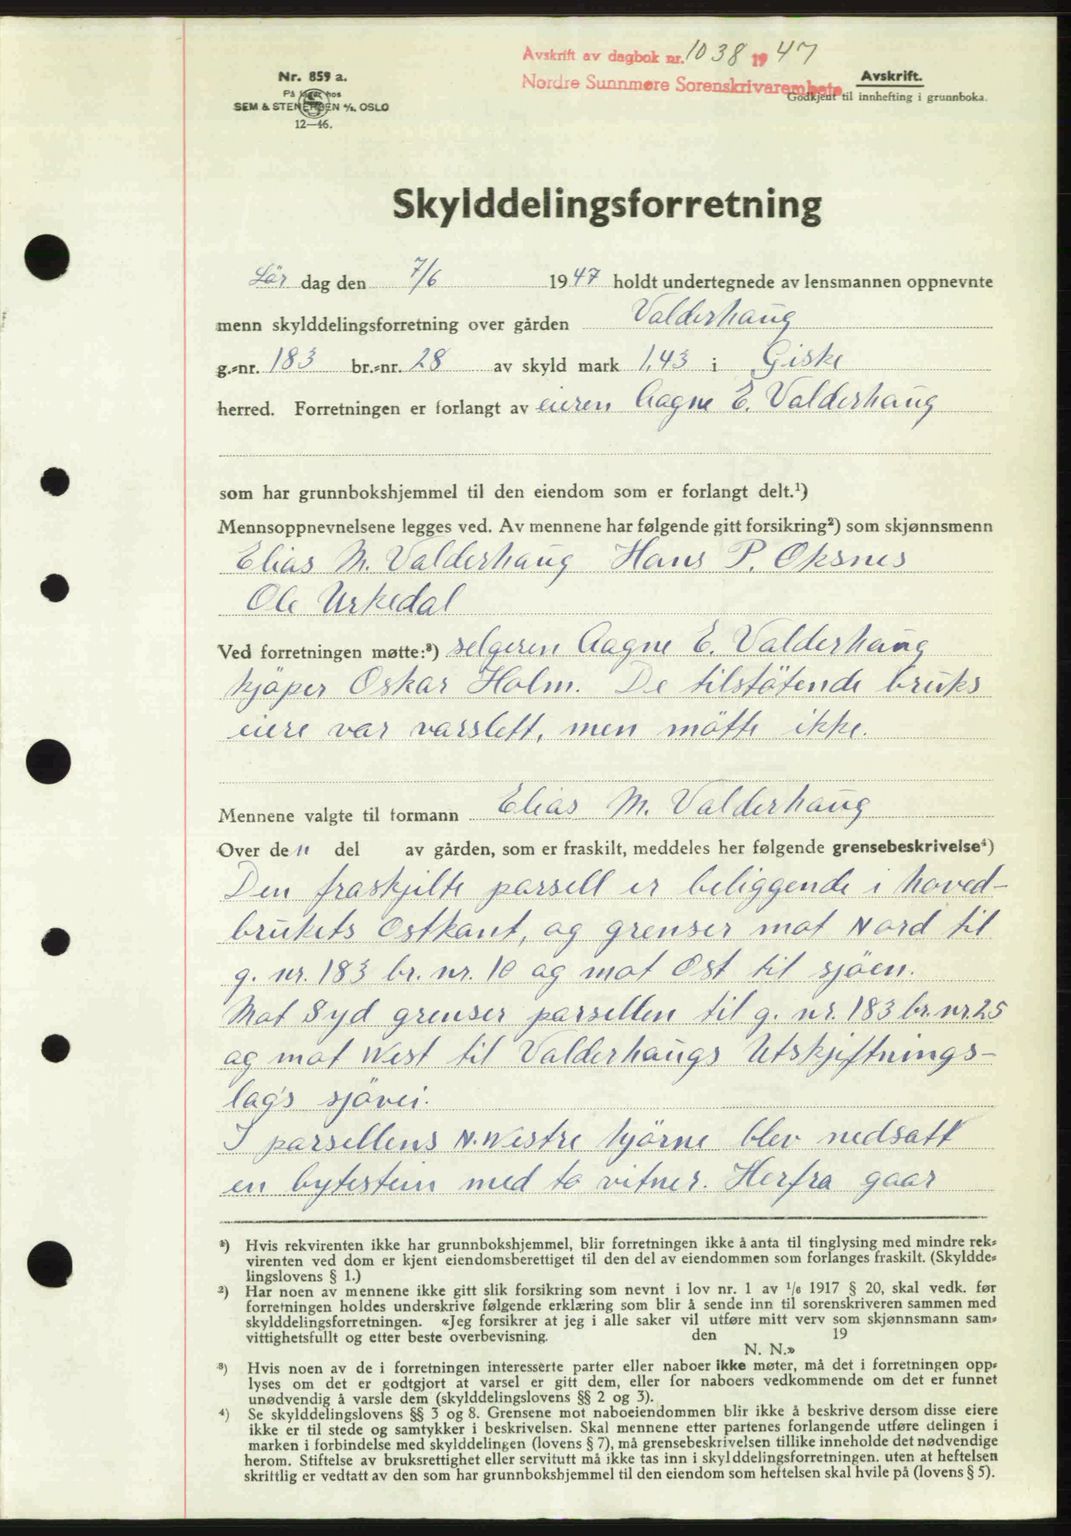 Avskrift av dagbok nr. 1038 1947
Nordre Sunnmøre Sorenskrivarembete
Nr. 859 a.
På lager hos
SEM & STENERSEN A/s. OSLO
12—46.
Avskrift.
Godkjent til innhefting i grunnboka.
Skylddelingsforretning
Lör dag den 7/6 1947 holdt undertegnede av lensmannen oppnevnte
menn skylddelingsforretning over gården Valderhaug
g.-nr. 183 br.-nr. 28 av skyld mark 1,43 i Giske
herred. Forretningen er forlangt av eieren Aagne E. Valderhaug
som har grunnbokshjemmel til den eiendom som er forlangt delt.¹)
Mennsoppnevnelsene legges ved. Av mennene har følgende gitt forsikring²) som skjønnsmenn
Elias M. Valderhaug Hans P. Oksnes
Ole Urkedal
Ved forretningen møtte:³) selgeren Aagne E. Valderhaug
kjöper Oskar Holm. De tilstötende bruks
eiere var varslett, men mötte ikke.
Mennene valgte til formann Elias M. Valderhaug
Over den del av gården, som er fraskilt, meddeles her følgende grensebeskrivelse⁴)
Den fraskjilte parsell er beliggende i hoved-
brukets Ostkant, og grenser mot Nord til
g. nr. 183 br. nr. 10 og mot Ost til sjöen.
Mot Syd grenser parsellen til g. nr. 183 br. nr 25
og mot West til Valderhaugs Utskjiftnings-
lag's sjövei.
I parsellens N. Westre hjörne blev nedsatt
en bytestein med to vitner. Herfra gaar
¹) Hvis rekvirenten ikke har grunnbokshjemmel, blir forretningen ikke å anta til tinglysing med mindre rek-
virenten ved dom er kjent eiendomsberettiget til den del av eiendommen som forlanges fraskilt. (Skyldde-
lingslovens § 1.)
²) Har noen av mennene ikke gitt slik forsikring som nevnt i lov nr. 1 av 1/6 1917 § 20, skal vedk. før
forretningen holdes underskrive følgende erklæring som blir å sende inn til sorenskriveren sammen med
skylddelingsforretningen. «Jeg forsikrer at jeg i alle saker vil utføre mitt verv som skjønnsmann sam-
vittighetsfullt og etter beste overbevisning. den 19
N. N.»
³) Hvis noen av de i forretningen interesserte parter eller naboer ikke møter, må det i forretningen opp-
lyses om det er godtgjort at varsel er gitt dem, eller for naboers vedkommende om det er funnet
unødvendig å varsle dem (skylddelingslovens §§ 2 og 3).
⁴) Se skylddelingslovens §§ 3 og 8. Grensene mot naboeiendommen blir ikke å beskrive dersom disse eiere
ikke er til stede og samtykker i beskrivelsen. Skal mennene etter partenes forlangende utføre delingen i
marken i forbindelse med skylddelingen (lovens § 7), må grensebeskrivelsen tillike inneholde det nødvendige
herom. Stiftelse av bruksrettighet eller servitutt må ikke tas inn i skylddelingsforretningen. uten at heftelsen
skriftlig er vedtatt av den som har grunnbokshjemmel til den eiendom som heftelsen skal hvile på (lovens § 5).